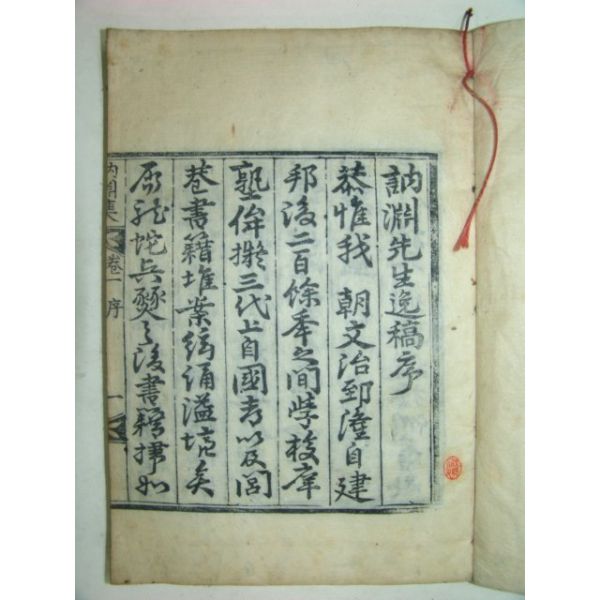 訥淵先生逸稿序
恭惟我 朝文治郅隆自建
邦後二百餘年之間學校庠
塾侔擬三代上自國考以及閭
巷書籍堆案絃誦溢境矣
龍蛇兵燹之後書籍掃如
訥淵集 卷一 序 一